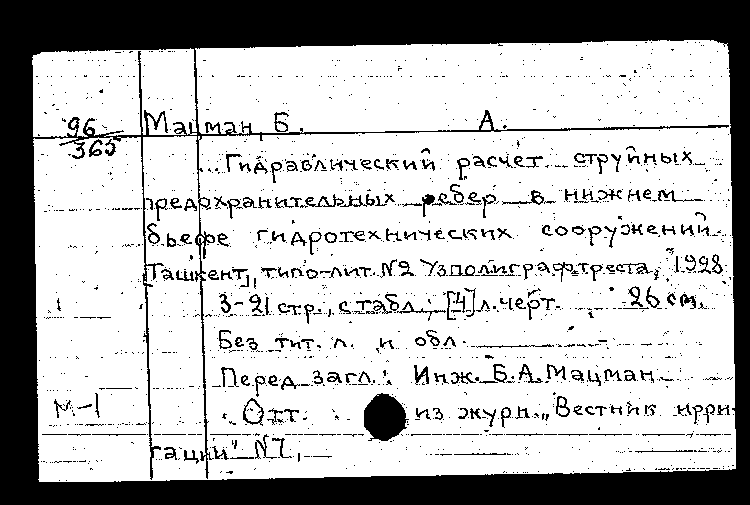 96
365
Мацман, Б. А.
...Гидравлический расчет струйных
предохранительных ребер в нижнем
бьефе гидротехнических сооружений
[Ташкент], типо-лит. №2 Узполиграфтреста, 1928
3-21 стр., с табл.; [4] л. черт. 26 см.
Без тит. л. и обл.
Перед загл.: Инж. Б.А. Мацман
М-1
Отт. из журн. „Вестник ирри-
гации" №7,